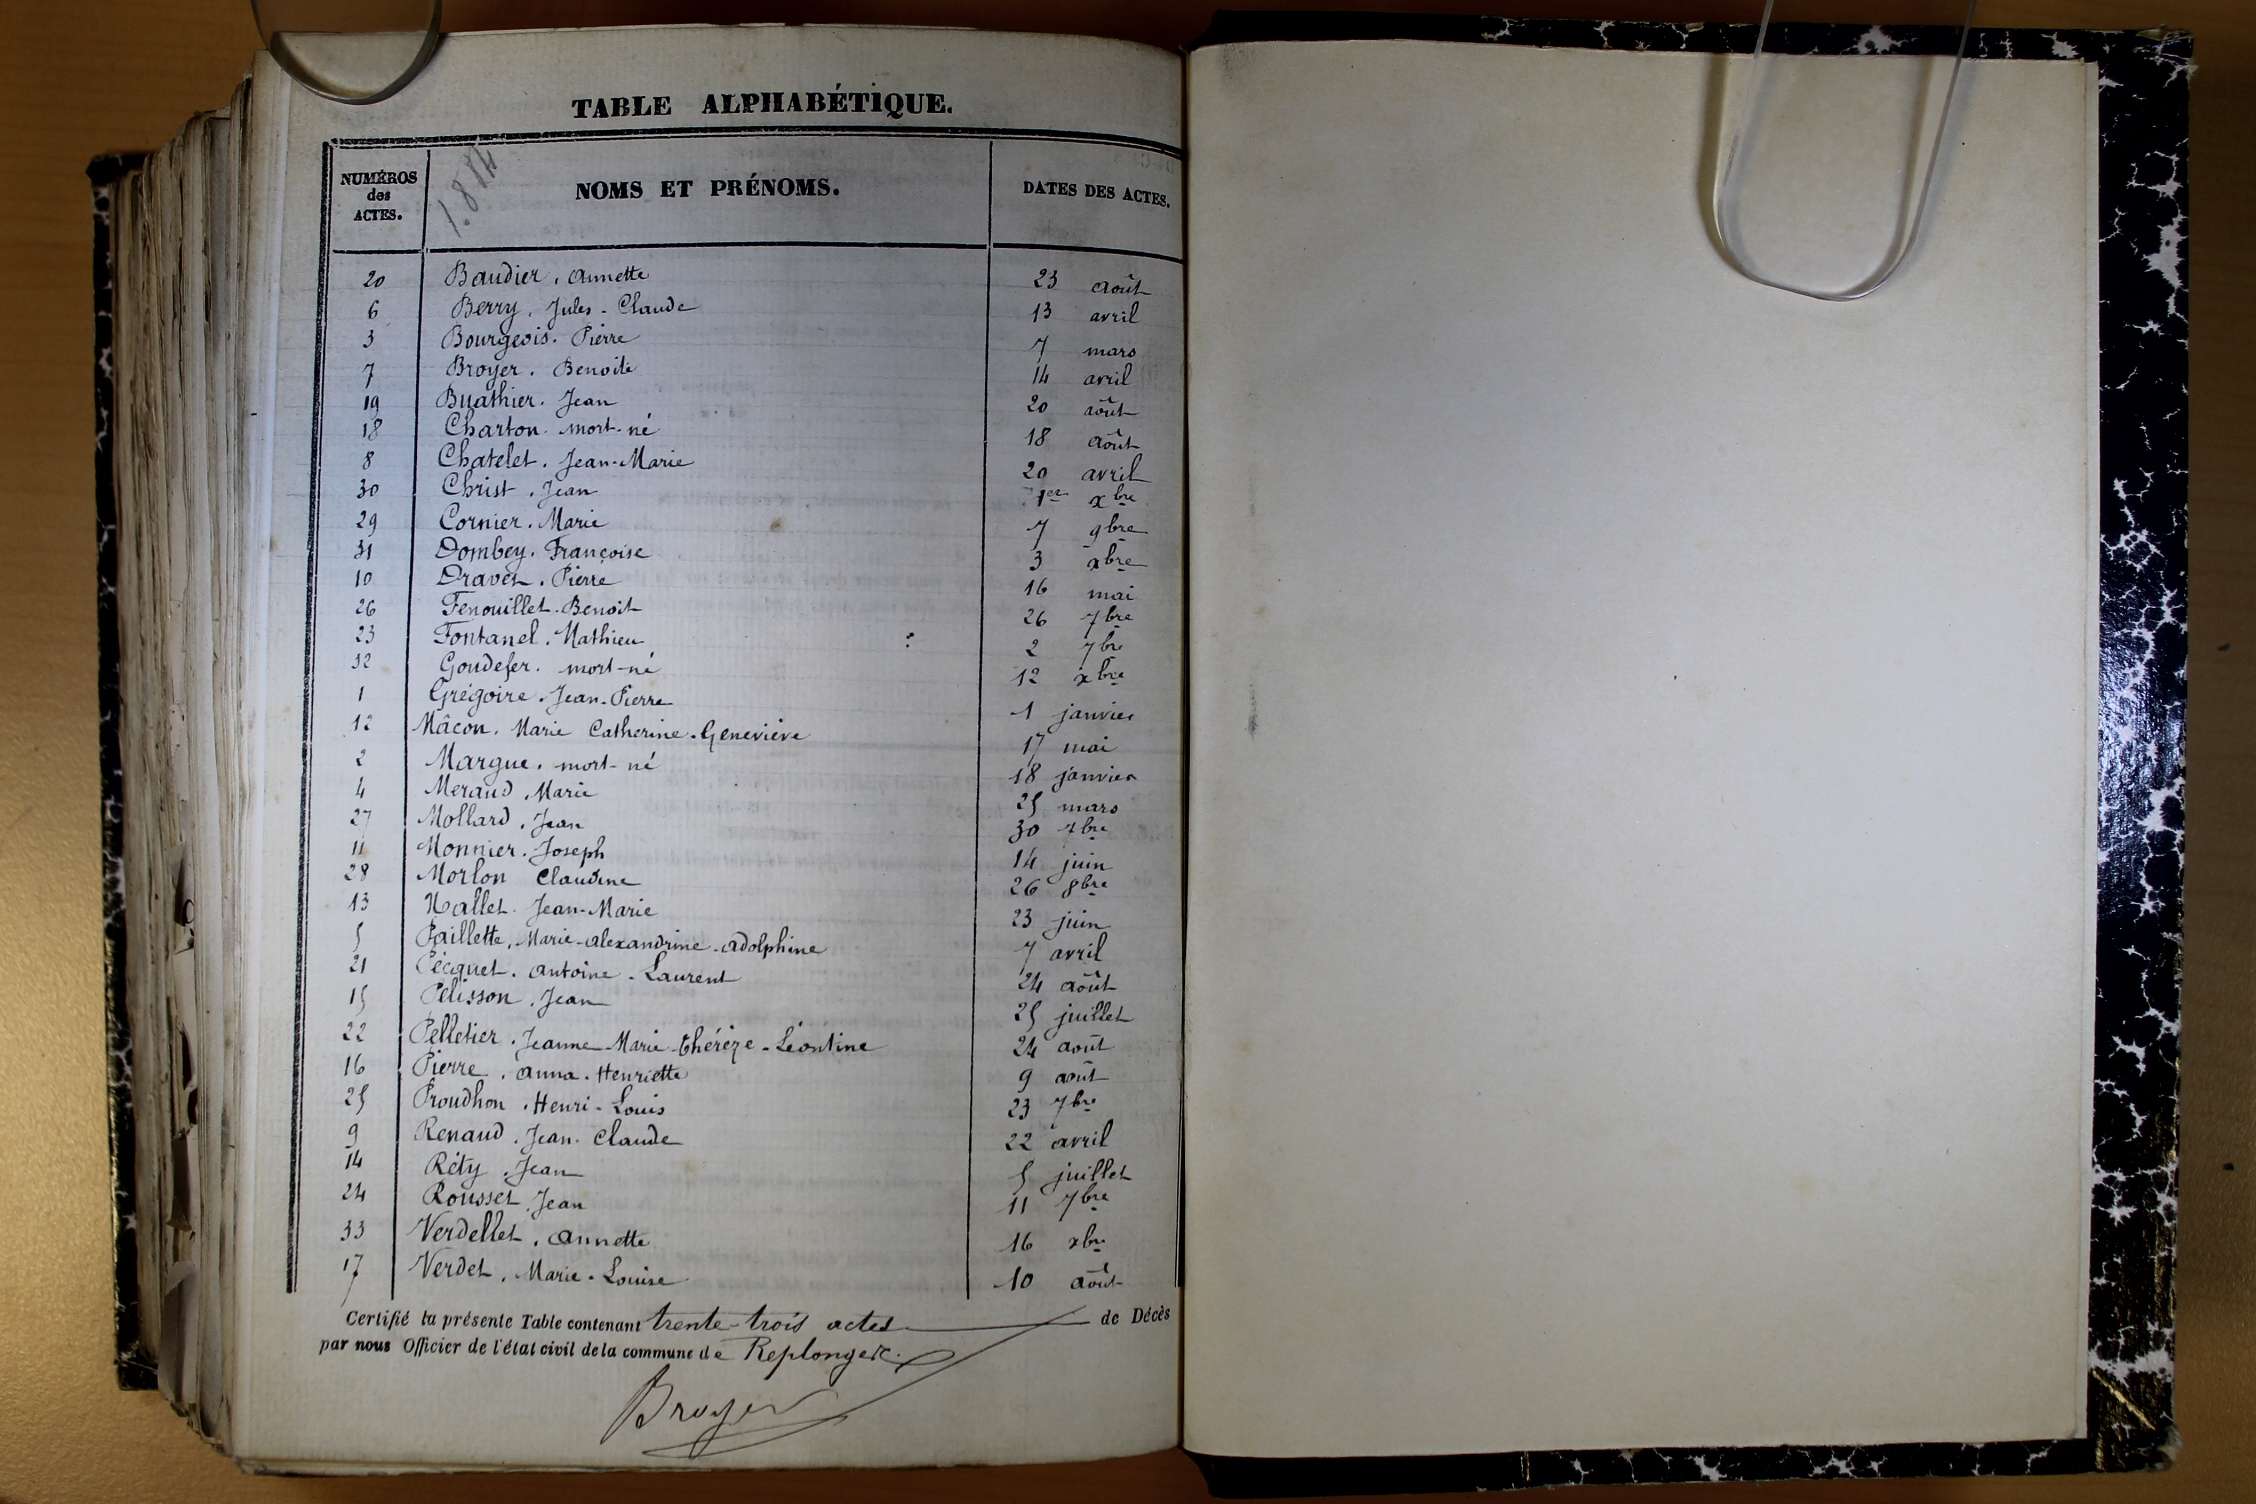 TABLE ALPHABÉTIQUE.
NUMÉROS des ACTES. NOMS ET PRÉNOMS. DATES DES ACTES.
20 Baudier, Annette 23 août
6 Berry, Jules-Claude 13 avril
3 Bourgeois, Pierre 7 mars
7 Broyer, Benoite 14 avril
19 Buathier, Jean 20 août
18 Charton, mort-né 18 août
8 Chatelet, Jean-Marie 20 avril
30 Christ, Jean 1er xbre
29 Cornier, Marie 7 9bre
31 Dombey, Françoise 3 xbre
10 Dravet, Pierre 16 mai
26 Fenouillet, Benoit 26 7bre
23 Fontanel, Mathieu 2 7bre
32 Goudefer, mort-né 12 xbre
1 Grégoire, Jean-Pierre 1 janvier
12 Mâcon, Marie Catherine-Geneviève 17 mai
2 Margue, mort-né 18 janvier
4 Meraud, Marie 25 mars
27 Mollard, Jean 30 7bre
11 Monnier, Joseph 14 juin
28 Morlon Claudine 26 8bre
13 Nallet, Jean-Marie 23 juin
5 Paillette, Marie-Alexandrine-Adolphine 7 avril
21 Pécquet, Antoine-Laurent 24 août
15 Pélisson, Jean 25 juillet
22 Pelletier, Jeanne-Marie-Thérèze-Léontine 24 août
16 Pierre, Anna-Henriette 9 août
25 Proudhon, Henri-Louis 23 7bre
9 Renaud, Jean-Claude 22 avril
14 Réty, Jean 5 juillet
24 Rousset, Jean 11 7bre
33 Verdellet, Annette 16 xbre
17 Verdet, Marie-Louise 10 août
Certifié la présente Table contenant trente-trois actes de Décès
par nous Officier de l'état civil de la commune de Replonges.
Broyer